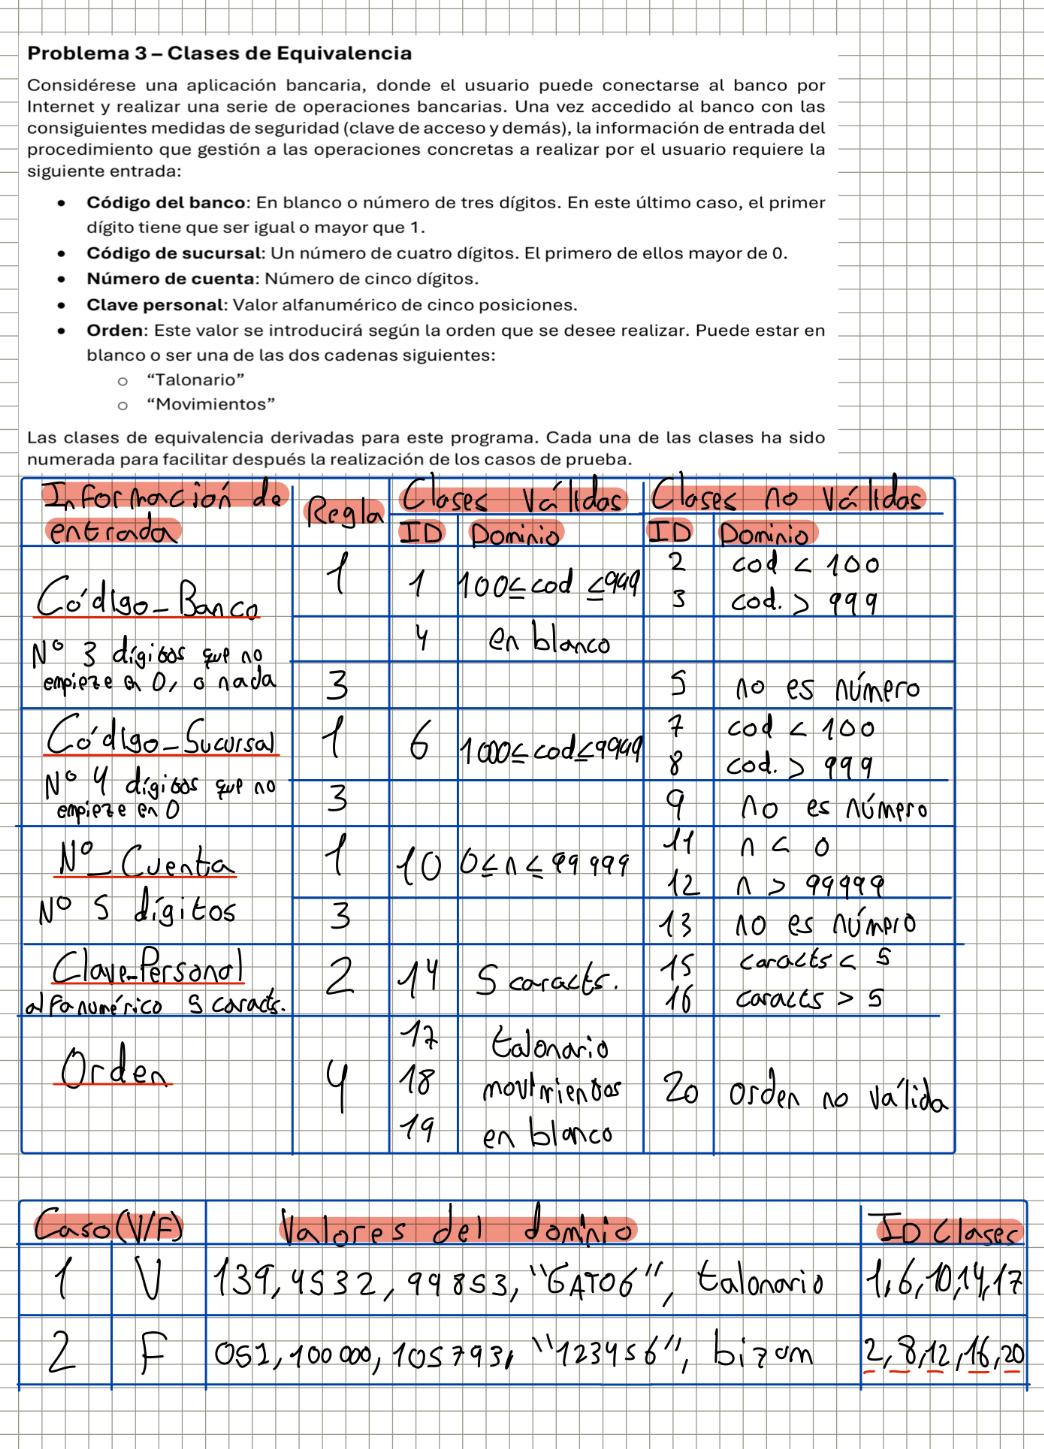 Problema 3 – Clases de Equivalencia
Considérese una aplicación bancaria, donde el usuario puede conectarse al banco por
Internet y realizar una serie de operaciones bancarias. Una vez accedido al banco con las
consiguientes medidas de seguridad (clave de acceso y demás), la información de entrada del
procedimiento que gestión a las operaciones concretas a realizar por el usuario requiere la
siguiente entrada:
• Código del banco: En blanco o número de tres dígitos. En este último caso, el primer
dígito tiene que ser igual o mayor que 1.
• Código de sucursal: Un número de cuatro dígitos. El primero de ellos mayor de 0.
• Número de cuenta: Número de cinco dígitos.
• Clave personal: Valor alfanumérico de cinco posiciones.
• Orden: Este valor se introducirá según la orden que se desee realizar. Puede estar en
blanco o ser una de las dos cadenas siguientes:
o "Talonario"
o "Movimientos"
Las clases de equivalencia derivadas para este programa. Cada una de las clases ha sido
numerada para facilitar después la realización de los casos de prueba.
Información de entrada
Regla
Clases válidas
Clases no válidas
ID Dominio
ID Dominio
Código_Banco
Nº 3 dígitos que no
empieze en 0, o nada
1
1 100≤cod ≤999
2 cod < 100
3 cod. > 999
4 en blanco
3
5 no es número
Código_Sucursal
Nº 4 dígitos que no
empieze en 0
1
6 1000≤cod≤9999
7 cod < 100
8 cod. > 999
3
9 no es número
Nº_Cuenta
Nº 5 dígitos
1
10 0≤n≤99999
11 n < 0
12 n > 99999
3
13 no es número
Clave_Personal
alfanumérico 5 caracts.
2
14 5 caracts.
15 caracts < 5
16 caracts > 5
Orden
4
17 talonario
18 movimientos
19 en blanco
20 orden no válida
Caso (V/F) Valores del dominio ID Clases
1 V 139, 4532, 99853, "GATO6", talonario 1,6,10,14,17
2 F 051, 100000, 105793, "123456", bizum 2,8,12,16,20